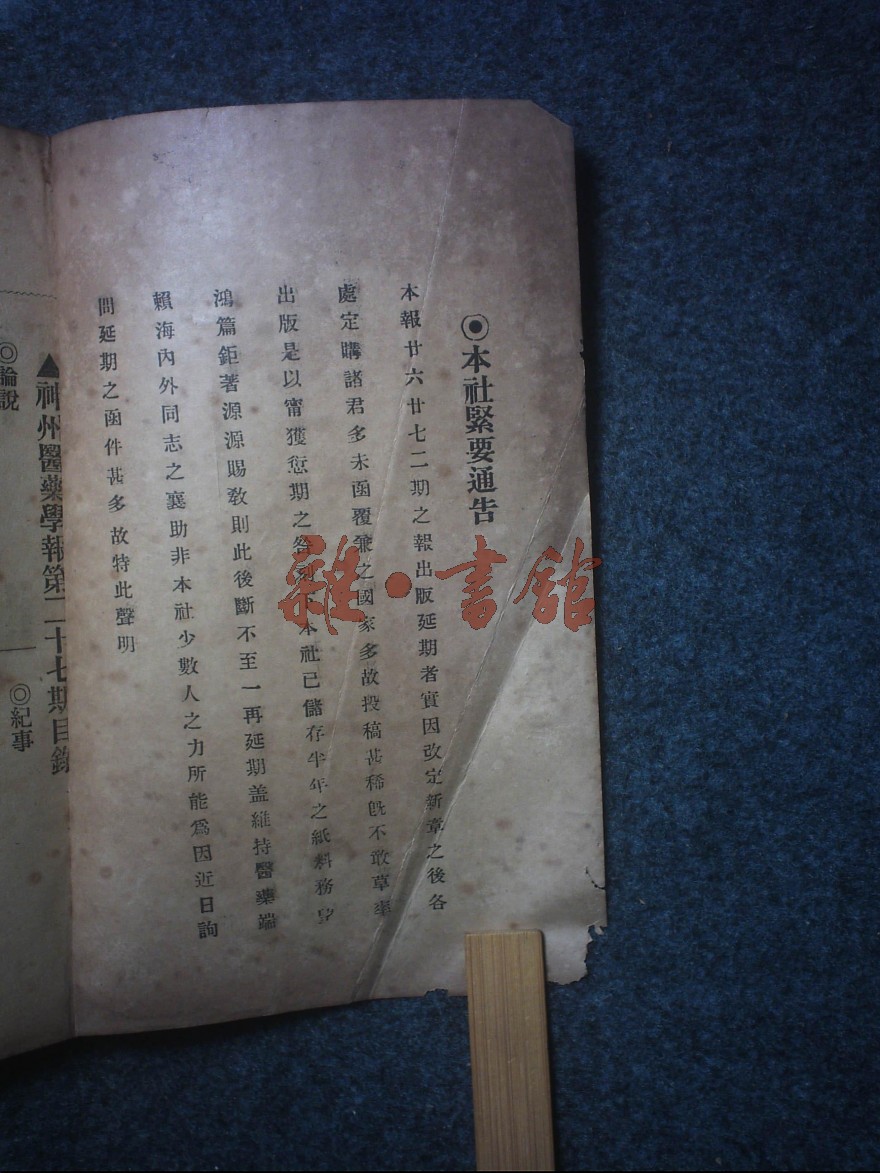 ◉本社緊要通告
本報廿六廿七二期之報出版延期者實因改定新章之後各
處定購諸君多未函覆兼之國家多故投稿甚稀旣不敢草率
出版是以甯獲愆期之咎 本社已儲存半年之紙料務
鴻篇鉅著源源賜敎則此後斷不至一再延期盖維持醫藥端
賴海內外同志之襄助非本社少數人之力所能爲因近日詢
問延期之函件甚多故特此聲明
▲神州醫藥學報第二十七期目錄
◎論說
◎紀事
雜·書館